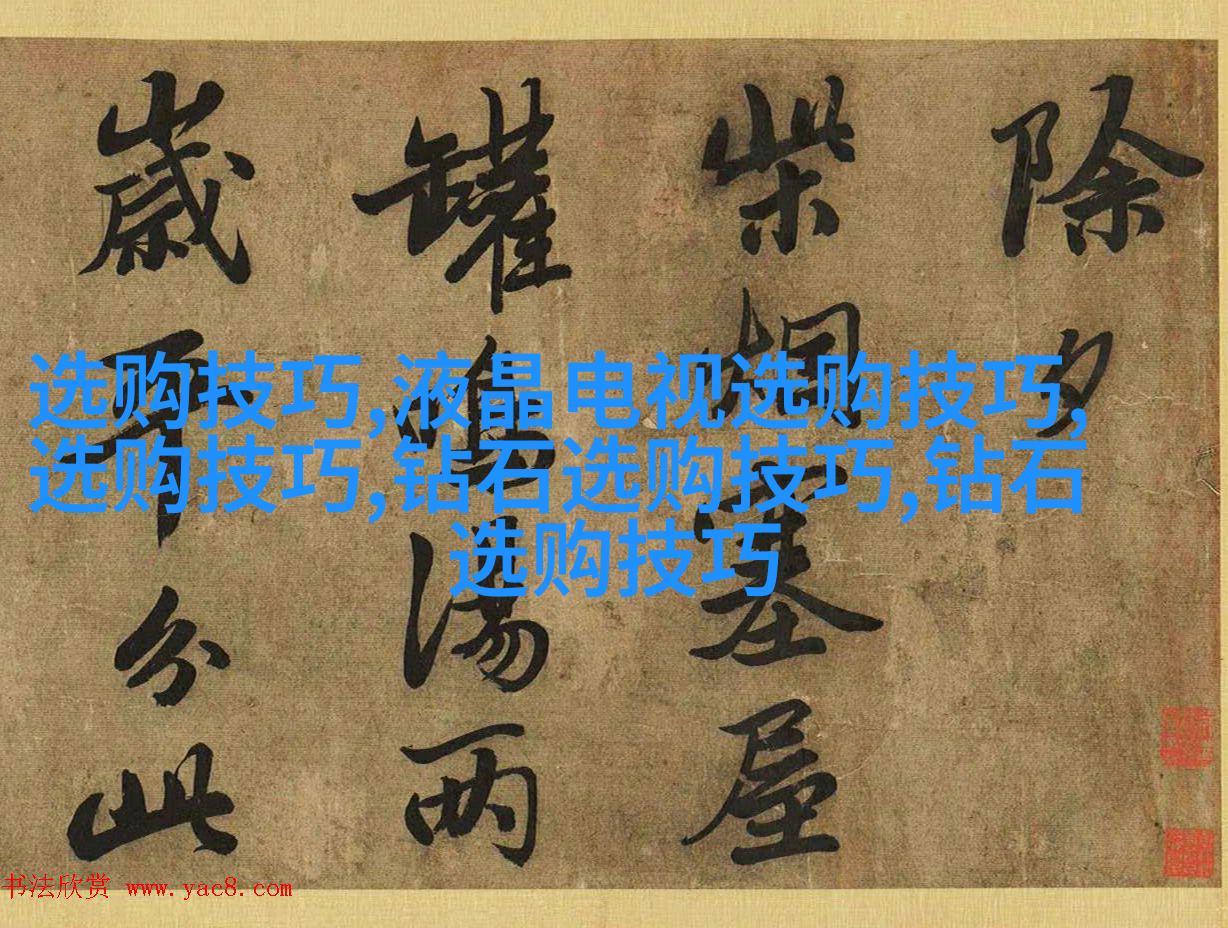 除夕
柴烟塞屋
罐鳴湯兩
歲平分此
选购技巧,液晶电视选购技巧,
选购技巧,钻石选购技巧,钻石
选购技巧
书法欣赏 www.yac8.com